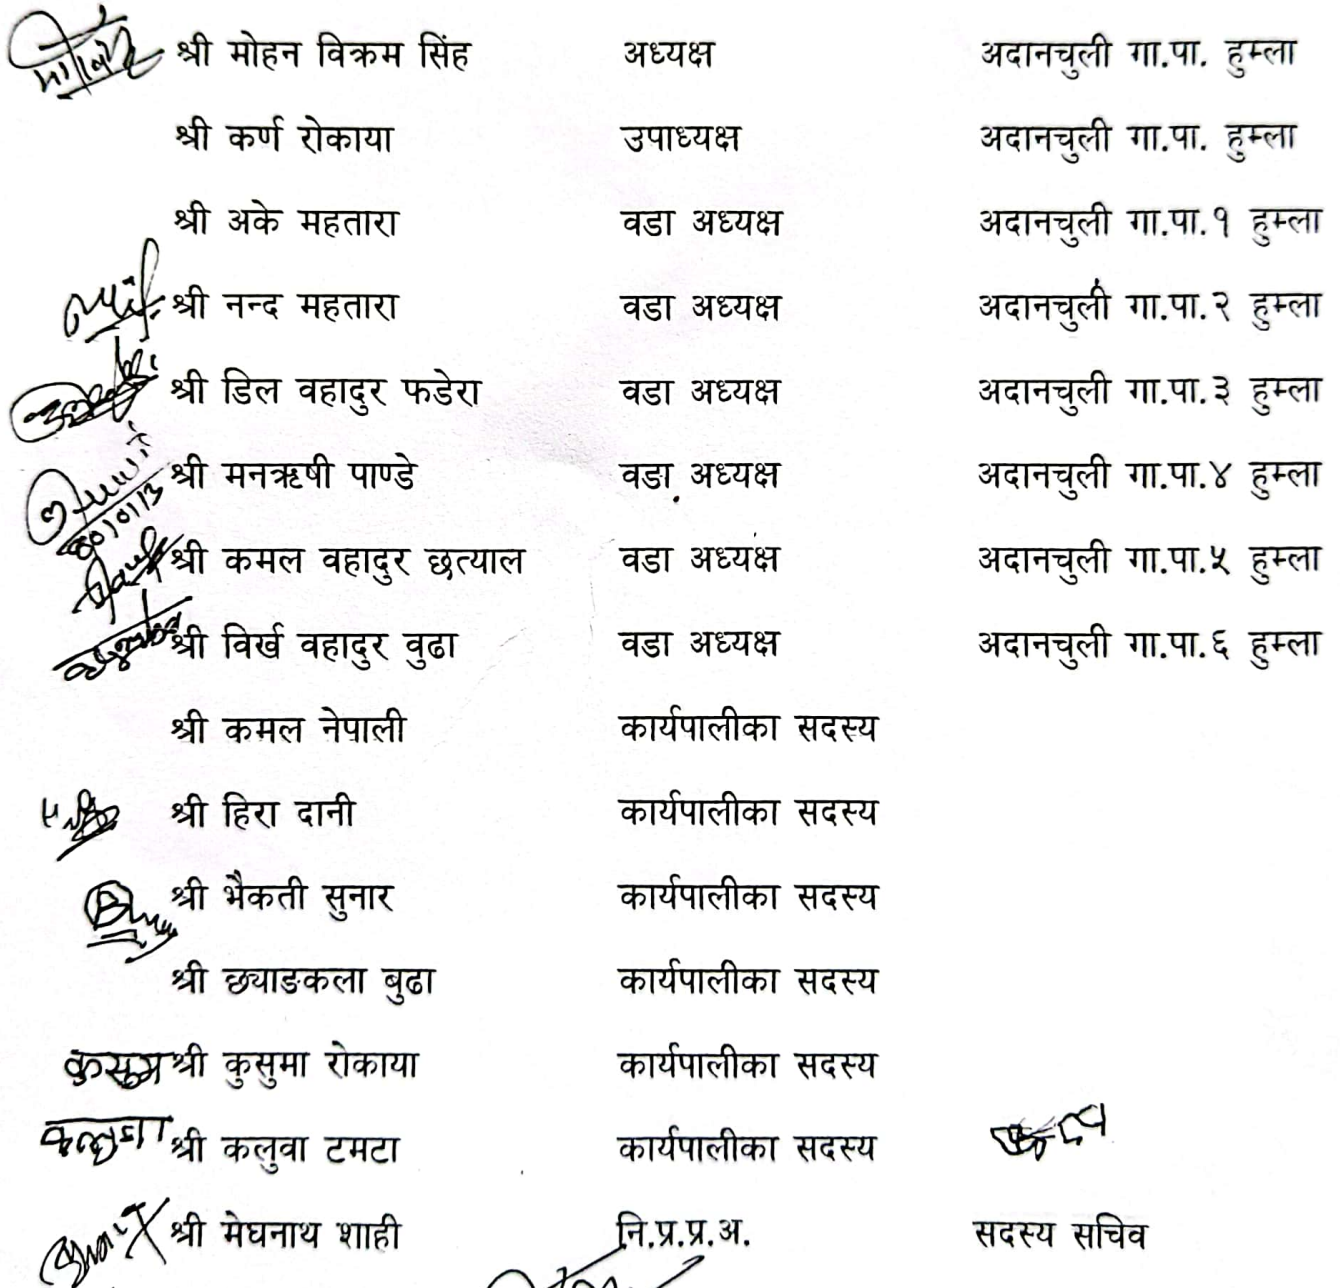 श्री मोहन विक्रम सिंह अध्यक्ष अदानचुली गा.पा. हुम्ला
श्री कर्ण रोकाया उपाध्यक्ष अदानचुली गा.पा. हुम्ला
श्री अके महतारा वडा अध्यक्ष अदानचुली गा.पा.१ हुम्ला
श्री नन्द महतारा वडा अध्यक्ष अदानचुली गा.पा.२ हुम्ला
श्री डिल वहादुर फडेरा वडा अध्यक्ष अदानचुली गा.पा.३ हुम्ला
श्री मनऋषी पाण्डे वडा अध्यक्ष अदानचुली गा.पा.४ हुम्ला
श्री कमल वहादुर छत्याल वडा अध्यक्ष अदानचुली गा.पा.५ हुम्ला
श्री विर्ख वहादुर वुढा वडा अध्यक्ष अदानचुली गा.पा.६ हुम्ला
श्री कमल नेपाली कार्यपालीका सदस्य
श्री हिरा दानी कार्यपालीका सदस्य
श्री भैकती सुनार कार्यपालीका सदस्य
श्री छ्याङकला बुढा कार्यपालीका सदस्य
श्री कुसुमा रोकाया कार्यपालीका सदस्य
श्री कलुवा टमटा कार्यपालीका सदस्य
श्री मेघनाथ शाही नि.प्र.प्र.अ. सदस्य सचिव